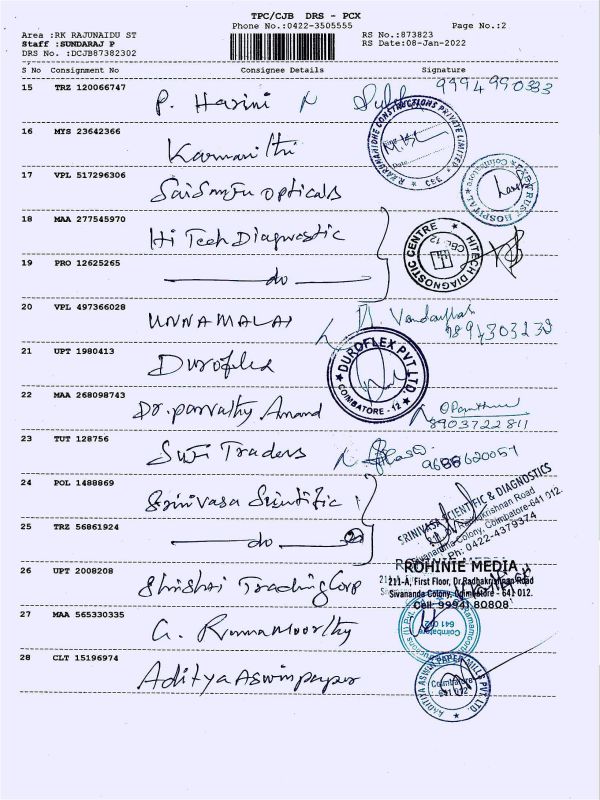 TPC/CJB DRS - PCX
Phone No.:0422-3505555
Page No.:2
Area :RK RAJUNAIDU ST
RS No.:873823
Staff :SUNDARAJ P
RS Date:08-Jan-2022
DRS No. :DCJB87382302
S No Consignment No Consignee Details Signature
15 TRZ 120066747 P. Harini 9994990383
16 MYS 23642366
R.KARUNANIDHE CONSTRUCTIONS PRIVATE LIMITED * CBE *
Date
17 VPL 517296306 opticals
TRUST HOSPITAL * Coimbatore *
18 MAA 277545970 Hi Tech Diagnostic
HITECH DIAGNOSTIC CENTRE
CBE-12
19 PRO 12625265 do
20 VPL 497366028 UNNAMALAI
21 UPT 1980413 Duroflex
DUROFLEX PVT. LTD.
COIMBATORE - 12
22 MAA 268098743 Dr. parvathy Anand
8903722811
23 TUT 128756 Traders
24 POL 1488869 Srinivasa Scientific
SRINIVASA SCIENTIFIC & DIAGNOSTICS
Sivananda Colony, Coimbatore-641 012.
Ph: 0422-4379374
25 TRZ 56861924 do
ROHINIE MEDIA
211-A, First Floor, Dr.Radhakrishnan Road
Sivananda Colony, Coimbatore - 641 012.
Cell: 99941 80808
26 UPT 2008208 Trading Corp
27 MAA 565330335 G. Ramamoorthy
Coimbatore
641 012
28 CLT 15196974 Aditya Aswin paper
AADITYAA ASWIN PAPER MILLS PVT. LTD.
Coimbatore
641 012